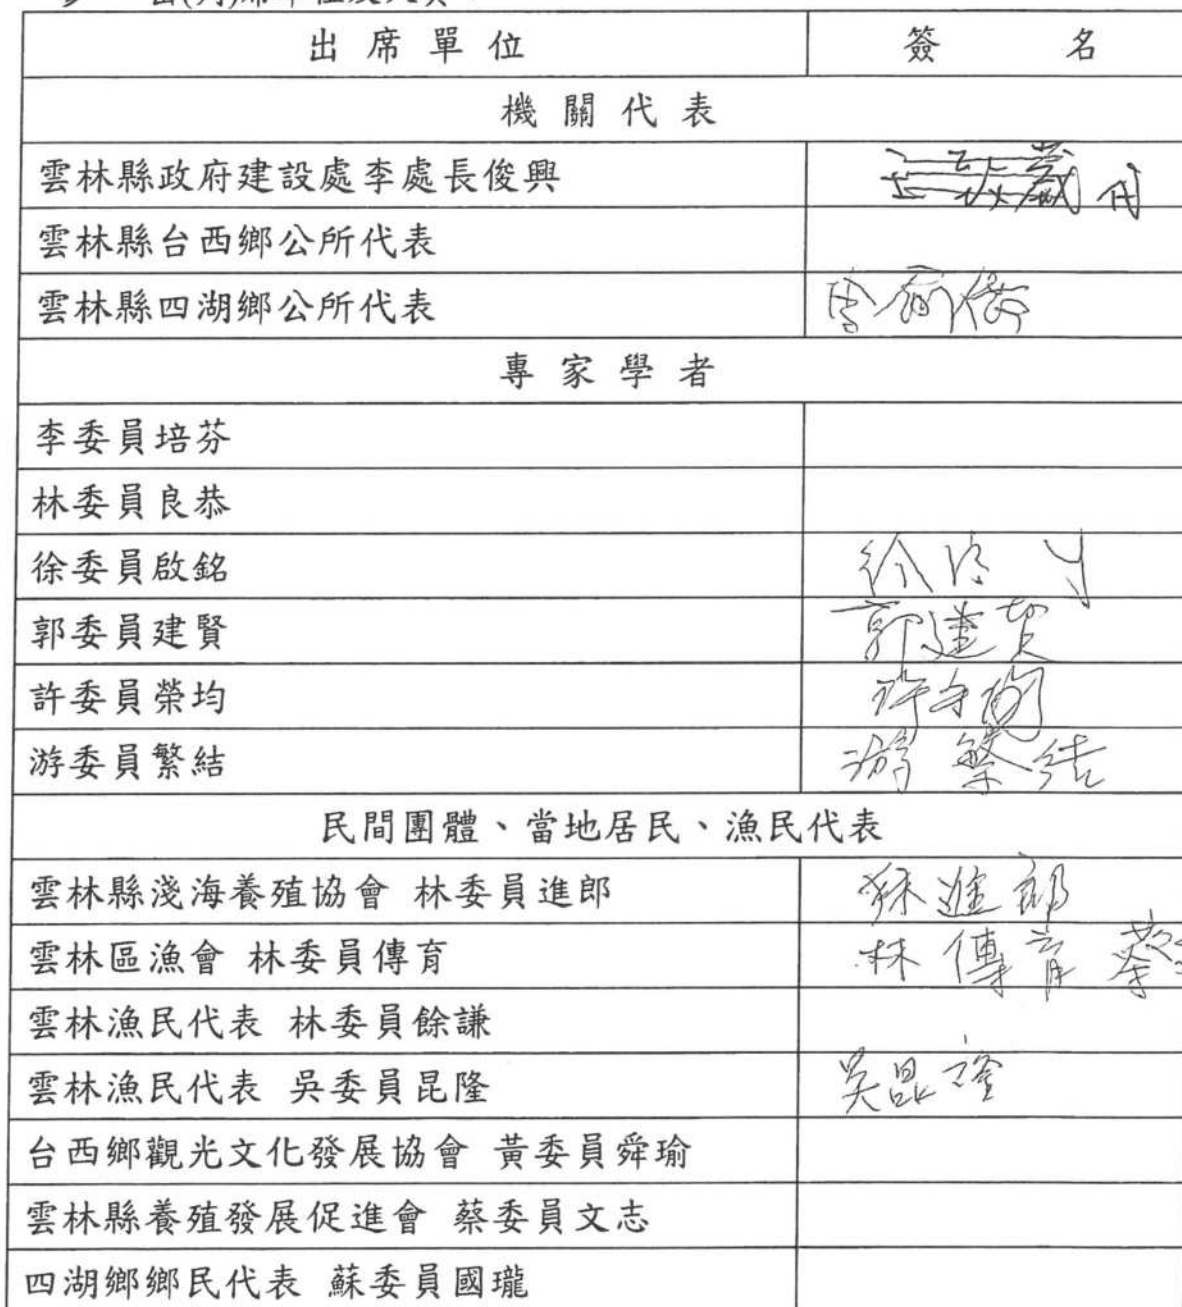 出席單位 簽名
機關代表
雲林縣政府建設處李處長俊興 代
雲林縣台西鄉公所代表
雲林縣四湖鄉公所代表
專家學者
李委員培芬
林委員良恭
徐委員啟銘
郭委員建賢 郭建賢
許委員榮均
游委員繁結 游繁結
民間團體、當地居民、漁民代表
雲林縣淺海養殖協會 林委員進郎 林進郎
雲林區漁會 林委員傳育 林傳育 蔡
雲林漁民代表 林委員餘謙
雲林漁民代表 吳委員昆隆 吳昆隆
台西鄉觀光文化發展協會 黃委員舜瑜
雲林縣養殖發展促進會 蔡委員文志
四湖鄉鄉民代表 蘇委員國瓏